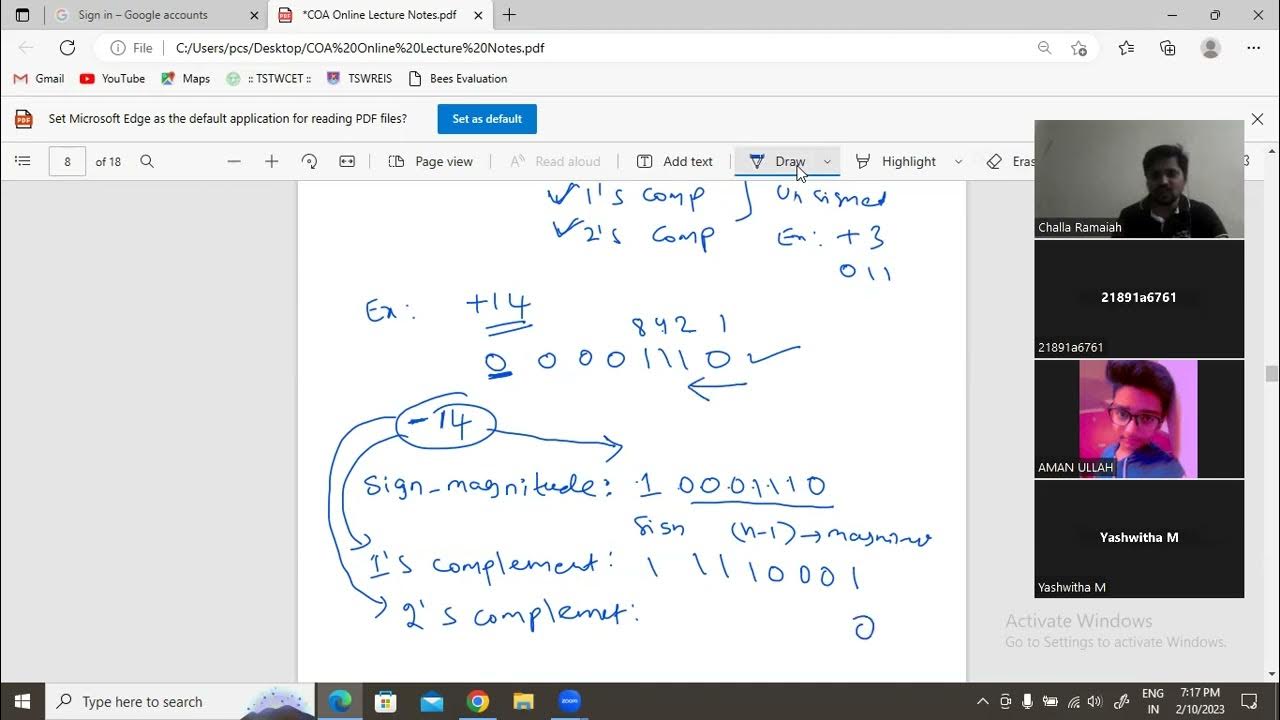 Sign in – Google accounts
*COA Online Lecture Notes.pdf
File C:/Users/pcs/Desktop/COA%20Online%20Lecture%20Notes.pdf
Gmail YouTube Maps :: TSTWCET :: TSWREIS Bees Evaluation
Set Microsoft Edge as the default application for reading PDF files? Set as default
8 of 18 Page view Read aloud Add text Draw Highlight Eras 3
1's comp Unsigned
2's comp Ex: +3
011
Ex: +14
8 4 2 1
0 0 0 0 1 1 1 0
-14
Sign-magnitude: 1 0001110
Sign (n-1) →
1's complement: 1 1 1 1 0 0 0 1
2's complemet:
0
Challa Ramaiah
21891a6761
21891a6761
AMAN ULLAH
Yashwitha M
Yashwitha M
Activate Windows
Go to Settings to activate Windows.
Type here to search
zoom
ENG
IN
7:17 PM
2/10/2023